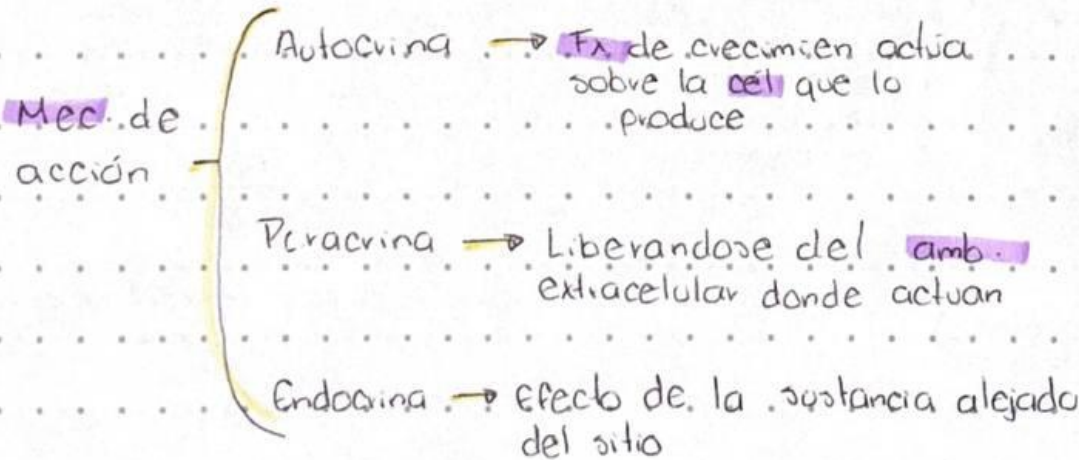 Autocrina → Fx de crecimien actua
sobre la cél que lo
produce
Mec. de
acción
Paracrina → Liberandose del amb.
extracelular donde actuan
Endocrina → Efecto de la sustancia alejado
del sitio